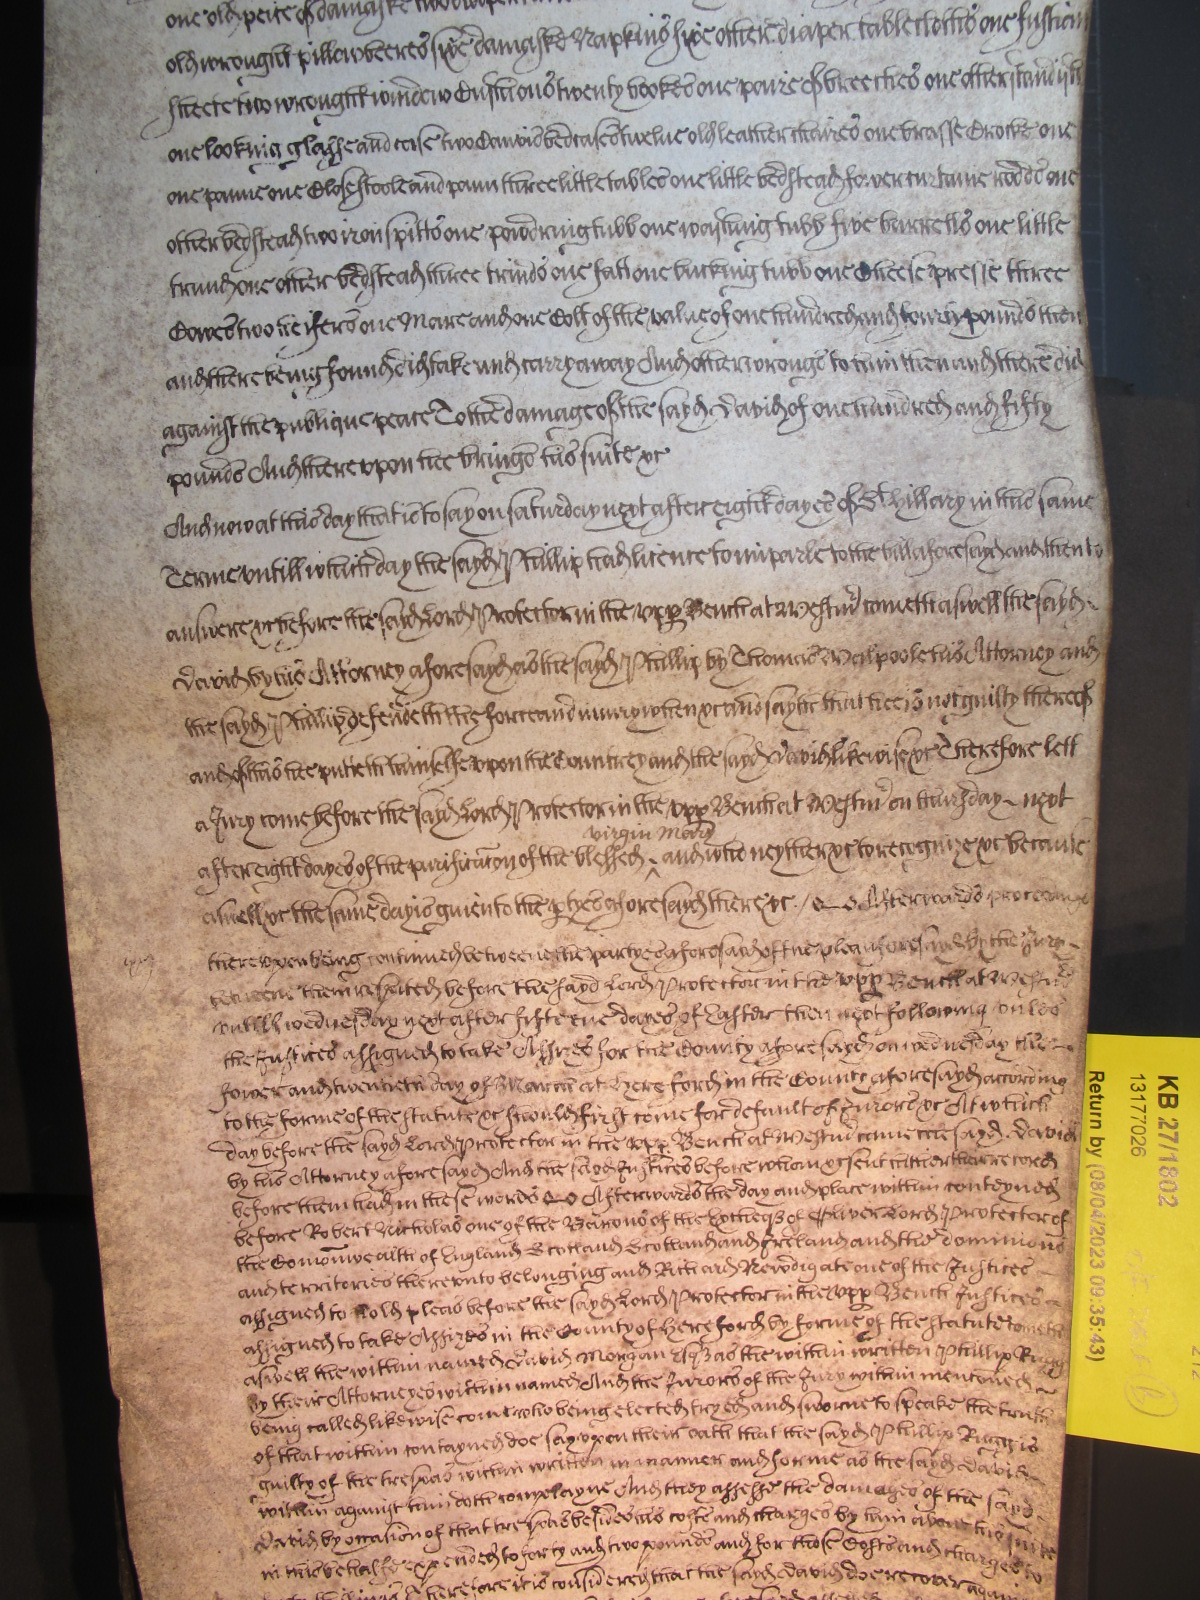 one old peice of damaske
old wrought pillowbeeres six damaske Napkins six other diaper tableclothes one fustian
sheete two wrought window Cushions twenty bookes one paire of breeches one other standish
one looking glasse and case two Canvis bedcases twelve old leather chaires one brasse Crocke one
one panne one Close stoole and pann three little tables one little bedsteed fower curtaine rodds one
other bedsteed two iron spitts one powdring tubb one washing tubb five barrells one little
trunck one other bedsteed three trinds one fatt one bucking tubb one Cheese presse three
Cowes two heifers one Mare and one Colt of the value of one hundred and pounds then
and there being found did take and carry away And other wrongs to him then and there did
against the publique peace To the damage of the sayd David of one hundred and fifty
pounds And thereupon hee brings his suite &c
And now at this day that is to say on saturday next after eight dayes of St hillary in this same
Terme untill which day the sayd Phillip had licence to imparle to the bill aforesayd and then to
answere &c before the sayd Lord Protector in the upp Bench at Westmr cometh aswell the sayd
David by his Attorney aforesayd as the sayd Phillip by Thomas Walpoole his Attorney and
the sayd Phillip defendeth the force and iniury when &c and sayth that hee is not guilty thereof
and of this hee putteth himselfe upon the Countrey and the sayd David likewise &c Therefore lett
a Jury come before the sayd Lord Protector in the upp Bench at Westmr on thursday next
after eight dayes of the purificacon of the blessed ^ virgin Mary and who neyther &c to recognize &c because
aswell &c the same day is given to the ptyes aforesayd there &c / Afterwards processe
thereupon being continued betweene the partyes aforesayd of the plea aforesayd by the Jury
betweene them respited before the sayd Lord Protector in the upp Bench at Westmr
untill wednesday next after fifteene dayes of Easter then next following unles
the Justices assigned to take Assizes for the County aforesayd on wednesday the
fower and twentieth day of March at hereford in the County aforesayd according
to the forme of the statute &c should first come for default of Jurors &c At which
day before the sayd Lord Protector in the upp Bench at Westmr came the sayd David
by his Attorney aforesayd And the sayd Justices before whom &c sent hither their record
before them had in these words Afterwards the day and place within conteyned
before Robert Nicholas one of the Barons of the Excheqr of Oliver Lord Protector of
the Comonwealth of England Scotland Scotland and Ireland and the dominions
and territories thereunto belonging and Richard Newdigate one of the Justices
assigned to hold pleas before the sayd Lord Protector in the upp Bench Justices
assigned to take Assizes in the County of Hereford by forme of the statute cometh
aswell the within named David Morgan Esqr as the within written Phillip Rugg
by their Attorneyes within named And the Jurors of the Jury within mentioned
being called likewise come who being elected tryed and sworne to speake the truth
of that within contayned doe say upon their oath that the sayd Phillip Rugg is
guilty of the trespas within written in manner and forme as the sayd David
within against him doth complayne And they assesse the damages of the sayd
David by occasion of that trespas besides his costs and charges by him about his suite
in this behalfe expended to forty and two pounds and for those Costs and charges to
Therefore it is considered that the sayd David doe recover against
KB 27/1802
13177026
Return by (08/04/2023 09:35:43)